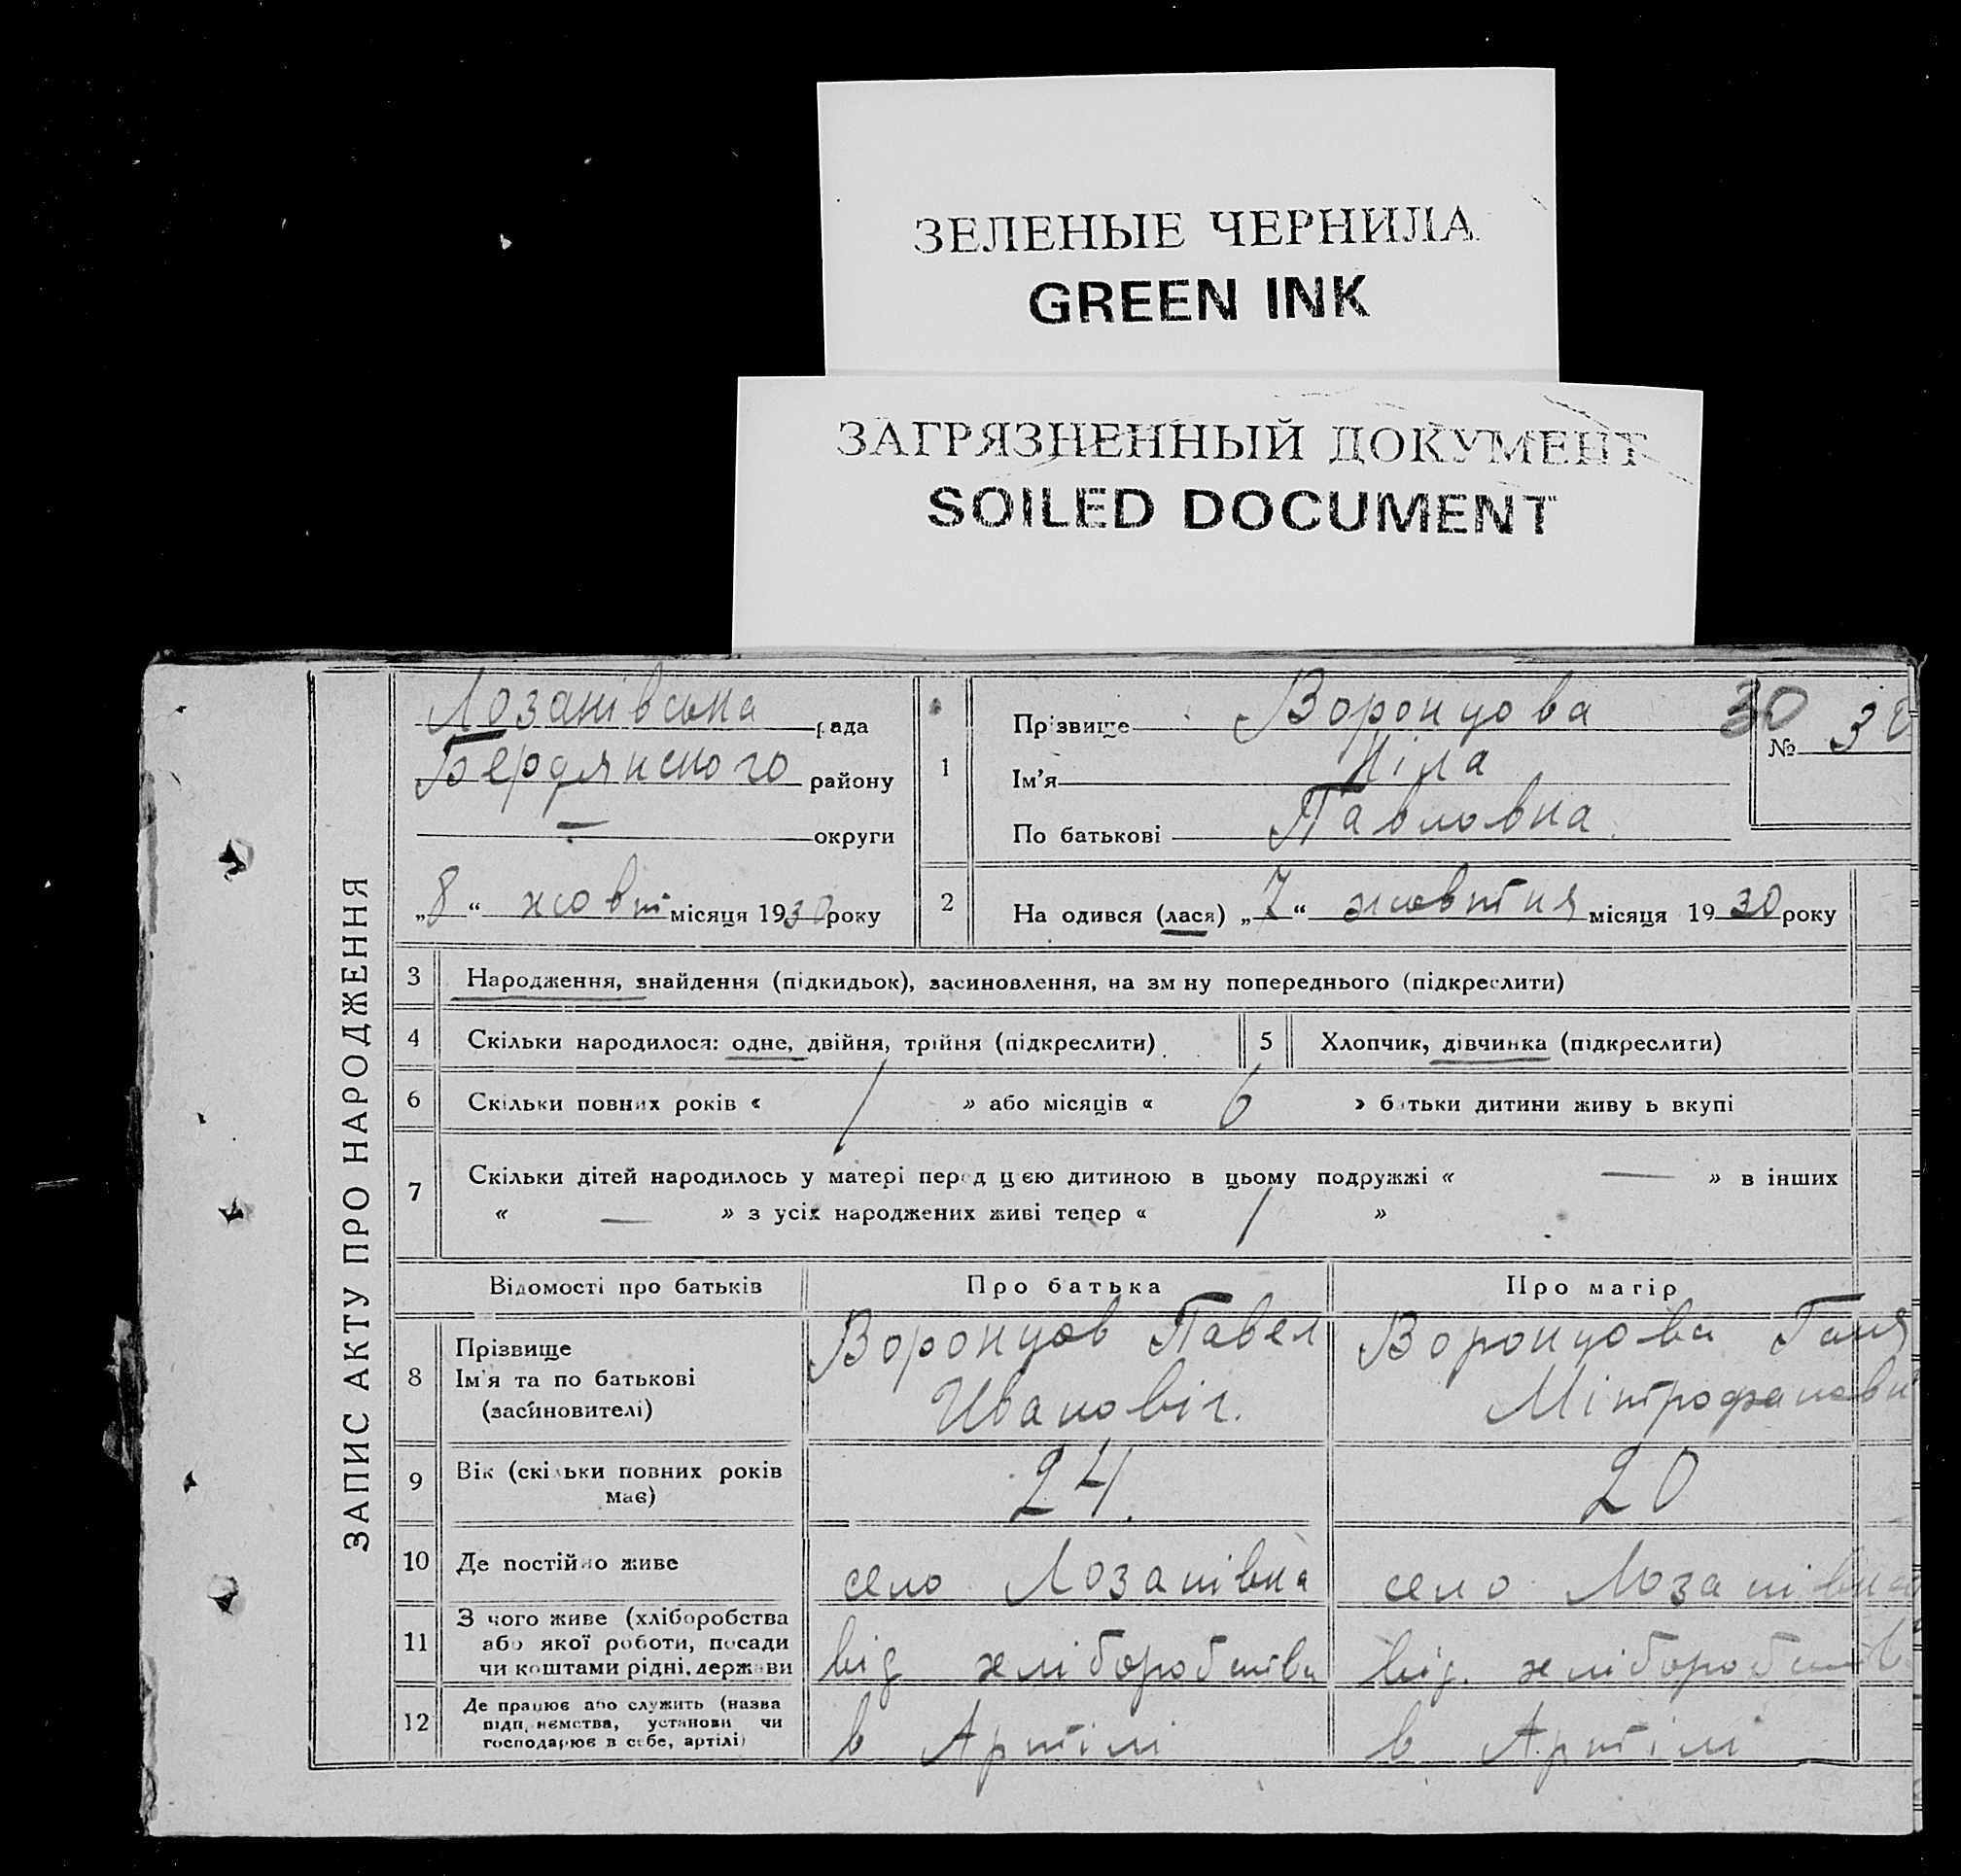 ЗЕЛЕНЫЕ ЧЕРНИЛА
GREEN INK
ЗАГРЯЗНЕННЫЙ ДОКУМЕНТ
SOILED DOCUMENT
ЗАПИС АКТУ ПРО НАРОДЖЕННЯ
Лозанівська рада
Бердянского району
— округи
„8“ жовт місяця 1930 року
1
Прізвище Воронцова
Ім'я Ніла
По батькові Павловна
30
№ 30
2 На одився (лася) „7“ жовтня місяця 1930 року
3 Народження, знайдення (підкидьок), засиновлення, на зм ну попереднього (підкреслити)
4 Скільки народилося: одне, двійня, трійня (підкреслити)
5 Хлопчик, дівчинка (підкреслити)
6 Скільки повних років « 1 » або місяців « 6 » батьки дитини живу ь вкупі
7 Скільки дітей народилось у матері перед цією дитиною в цьому подружжі « — » в інших
« — » з усіх народжених живі тепер « 1 »
Відомості про батьків Про батька Про матір
8 Прізвище
Ім'я та по батькові
(засиновителі)
Воронцов Павел
Ивановіч.
Воронцова Ганя
Мітрофановн
9 Вік (скільки повних років
має)
24.
20
10 Де постійно живе
село Лозанівка
село Лозанівка
11 З чого живе (хліборобства
або якої роботи, посади
чи коштами рідні, держави
від хліборобства
від. хліборобств
12 Де працює або служить (назва
підп, ємства, установи чи
господарює в себе, артілі)
в Артілі
в Артілі